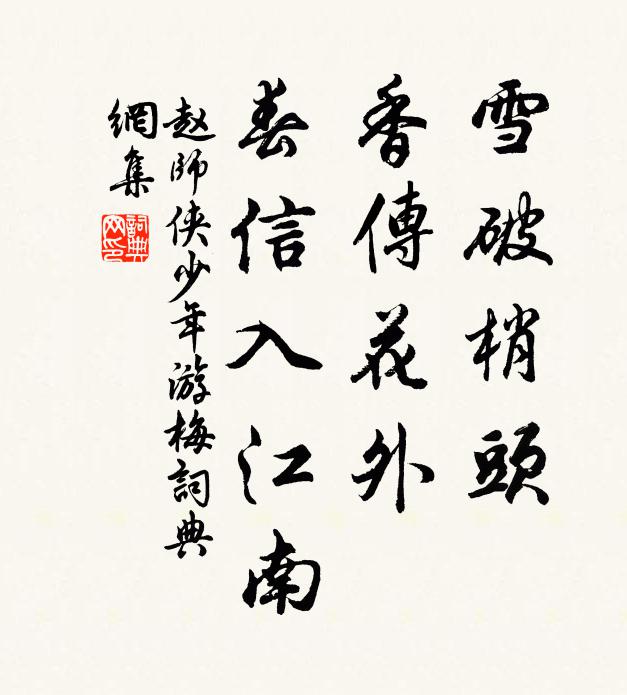 雪破梢頭
香傳花外
春信入江南
赵師侠少年游梅詞典
網集
詞典網印